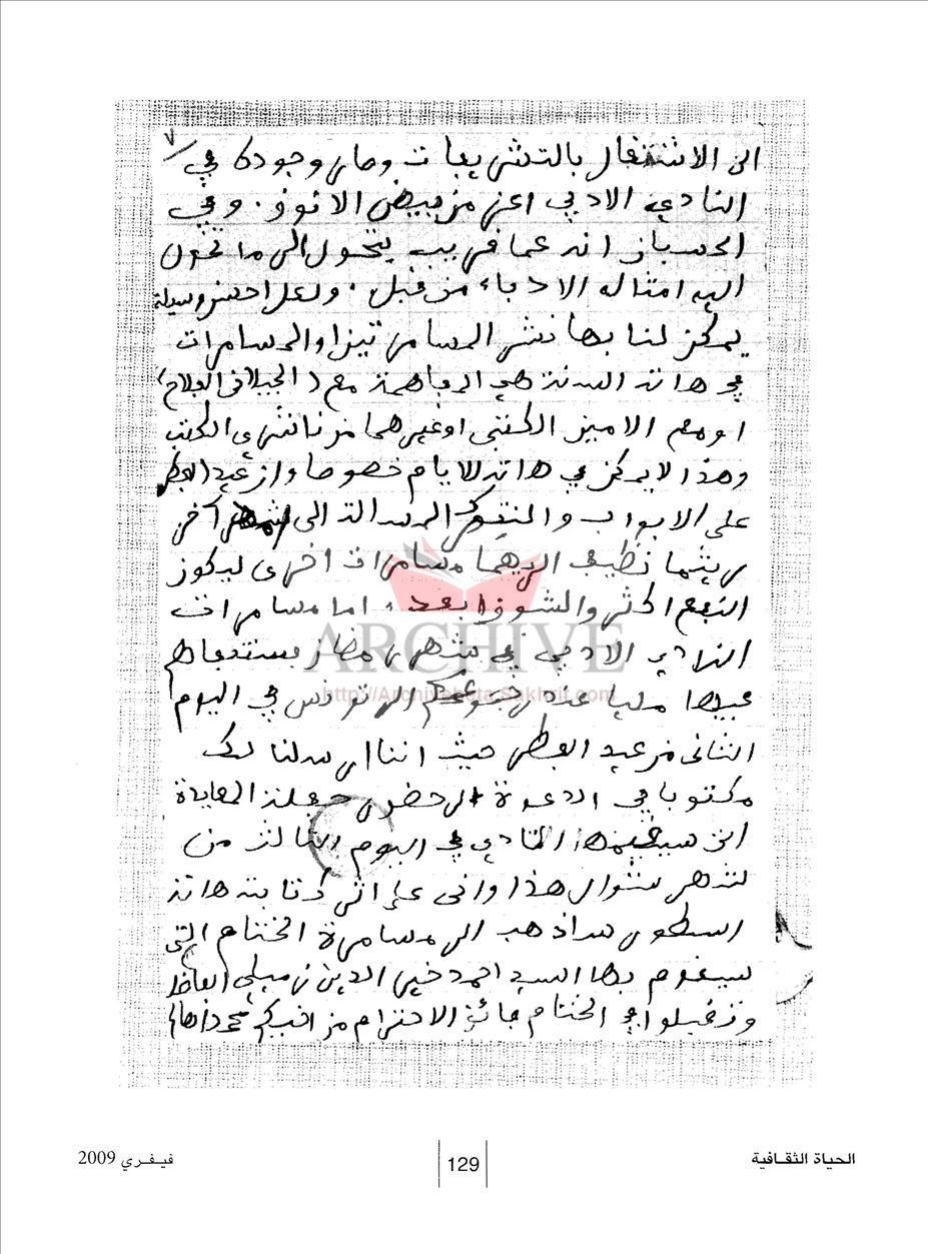 ٧
الى الاشتغال بالتشريعات وصار وجوده في
النادي الادبي اعز من بيض الانوق. وفي
الحسبان انه عما قريب يتحول الى ما تحول
اليه امثاله الادباء من قبل. ولعل احسن وسيلة
يمكن لنا بها نشر المسامرتين او المسامرات
في هاته السنة هي المساهمة مع (الجيلاني الفلاح)
او مع الامين الكتبي او غيرهما من ناشري الكتب
وهذا لا يمكن في هاته الايام خصوصا وان عيد الفطر
على الابواب المسالة الى شهر آخر
ريثما نظيف اليهما مسامرات اخرى ليكون
النفع اكثر والشوق ابعد. اما مسامرات
النادي الادبي في شهر رمضان
فيها مليا عند رجوعكم الى تونس في اليوم
الثاني من عيد الفطر حيث اننا ارسلنا لك
مكتوبا في الدعوة الى حضور حفلة المعايدة
التي سيقيمها النادي في اليوم الثالث من
شهر شوال هذا واني على اثر كتابة هاته
السطور ساذهب الى مسامرة الختام التي
سيقوم بها السيد احمد خير الدين زميلي
وتقبلوا في الختام فائق الاحترام من اخيكم محمد
ARCHIVE
http://Archivebeta.Sakhrit.com
الحياة الثقافية
129
فيفري 2009